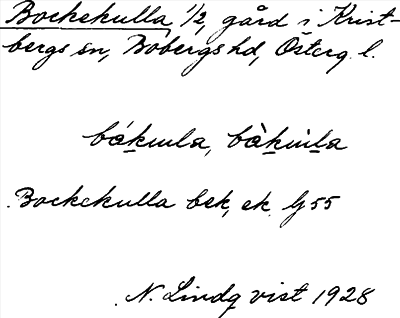 Bockekulla 1/2, gård i Krist-
bergs sn, Bobergs hd, Österg. l.
bákuula, bàkùula
Bockekulla bek, ek. bl 55
N. Lindqvist 1928